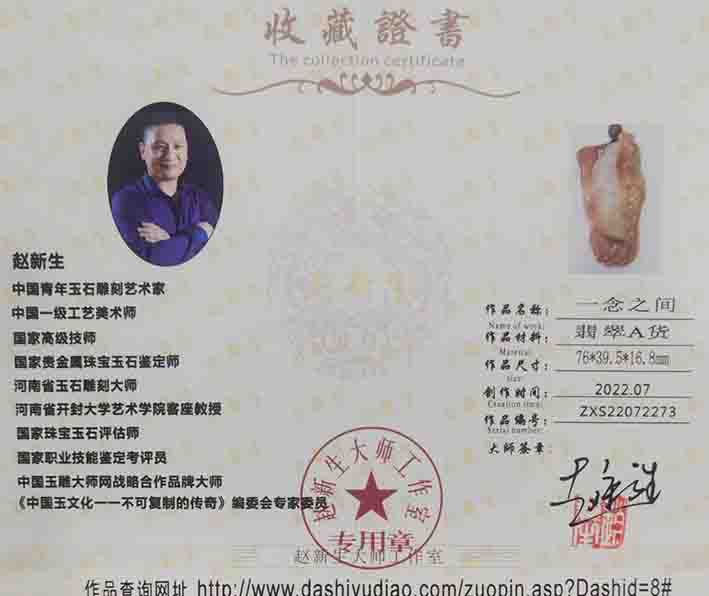 收藏證書
The collection certificate
赵新生
中国青年玉石雕刻艺术家
中国一级工艺美术师
国家高级技师
国家贵金属珠宝玉石鉴定师
河南省玉石雕刻大师
河南省开封大学艺术学院客座教授
国家珠宝玉石评估师
国家职业技能鉴定考评员
中国玉雕大师网战略合作品牌大师
《中国玉文化一一不可复制的传奇》编委会专家委员
作品名称：一念之间
Name of work:
作品材料：翡翠A货
Material:
作品尺寸：76*39.5*16.8mm
size:
创作时间：2022.07
Creation time:
作品编号：ZXS22072273
Serial number:
大师签章：
赵新生大师工作室
专用章
赵新生大师工作室
作品查询网址 http://www.dashiyudiao.com/zuopin.asp?Dashid=8#